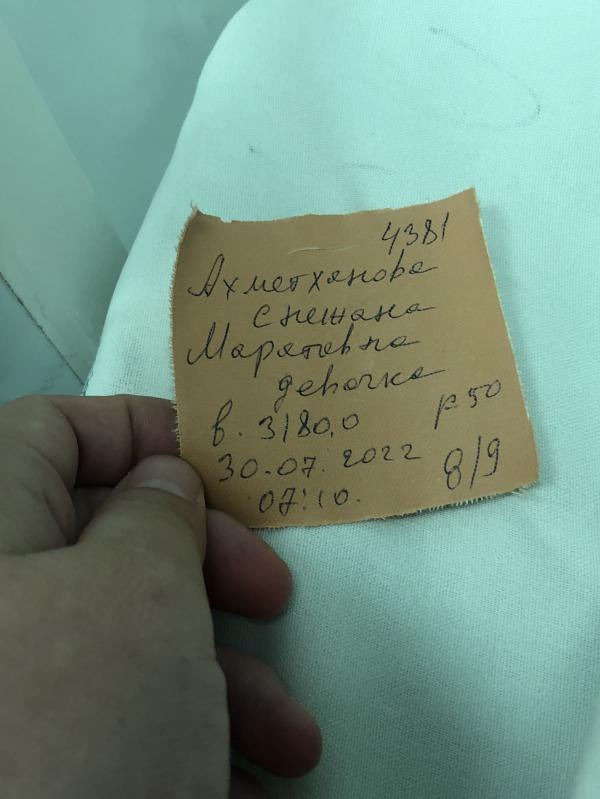 4381
Ахметханова
Снежана
Маратовна
девочка
в. 3180,0 р-50
30.07.2022 8/9
07:10.